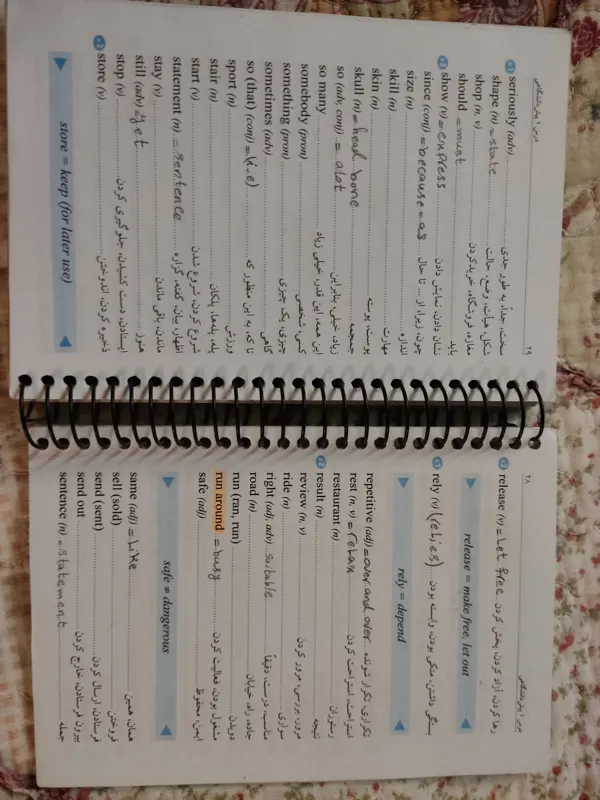 ۲۸ درس ۱ پیش‌دانشگاهی
release (v) = Let free رها کردن، آزاد کردن، پخش کردن
release = make free, let out
rely (v) (relies) بستگی داشتن، متکی بودن، وابسته بودن
rely = depend
repetitive (adj) = over and over تکراری، تکرار شونده
rest (n, v) = relax استراحت، استراحت کردن
restaurant (n) رستوران
result (n) نتیجه
review (n, v) مرور، بررسی، مرور کردن
ride (n) سواری
right (adj, adv) suitable مناسب، درست، دقیقاً
road (n) جاده، راه، خیابان
run (ran, run) دویدن
run around = busy مشغول بودن، فعالیت کردن
safe (adj) ایمن، محفوظ
safe ≠ dangerous
same (adj) = Like همان، همین
sell (sold) فروختن
send (sent) فرستادن، ارسال کردن
send out بیرون فرستادن، خارج کردن
sentence (n) = statement جمله
درس ۱ پیش‌دانشگاهی ۲۹
seriously (adv) سخت، جداً، به طور جدی
shape (n) = state شکل، هیأت، وضع، حالت
shop (n, v) مغازه، فروشگاه، خرید کردن
should = must باید
show (v) = express نشان دادن، نمایش دادن
since (conj) = because = as چون، زیرا، از ... تا حال
size (n) اندازه
skill (n) مهارت
skin (n) پوست، پوسته
skull (n) = head bone جمجمه
so (adv, conj) = alot زیاد، خیلی، بنابراین
so many این همه، این قدر، خیلی زیاد
somebody (pron) کسی، شخصی
something (pron) چیزی، یک چیزی
sometimes (adv) گاهی
so (that) (conj) تا که، به این منظور که
sport (n) ورزش
stair (n) پله، پله‌ها، پلکان
start (v) شروع کردن، شروع شدن
statement (n) = sentence اظهار، بیان، گفته، گزاره
stay (v) ماندن، باقی ماندن
still (adv) = yet هنوز
stop (v) ایستادن، دست کشیدن، جلوگیری کردن
store (v) ذخیره کردن، اندوختن
store = keep (for later use)